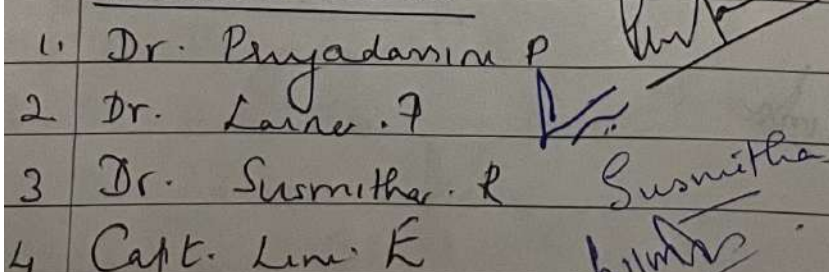 1. Dr. Priyadarsini P
2 Dr. Laines. F
3 Dr. Susmitha. R Susmitha
4 Capt. Lini. E